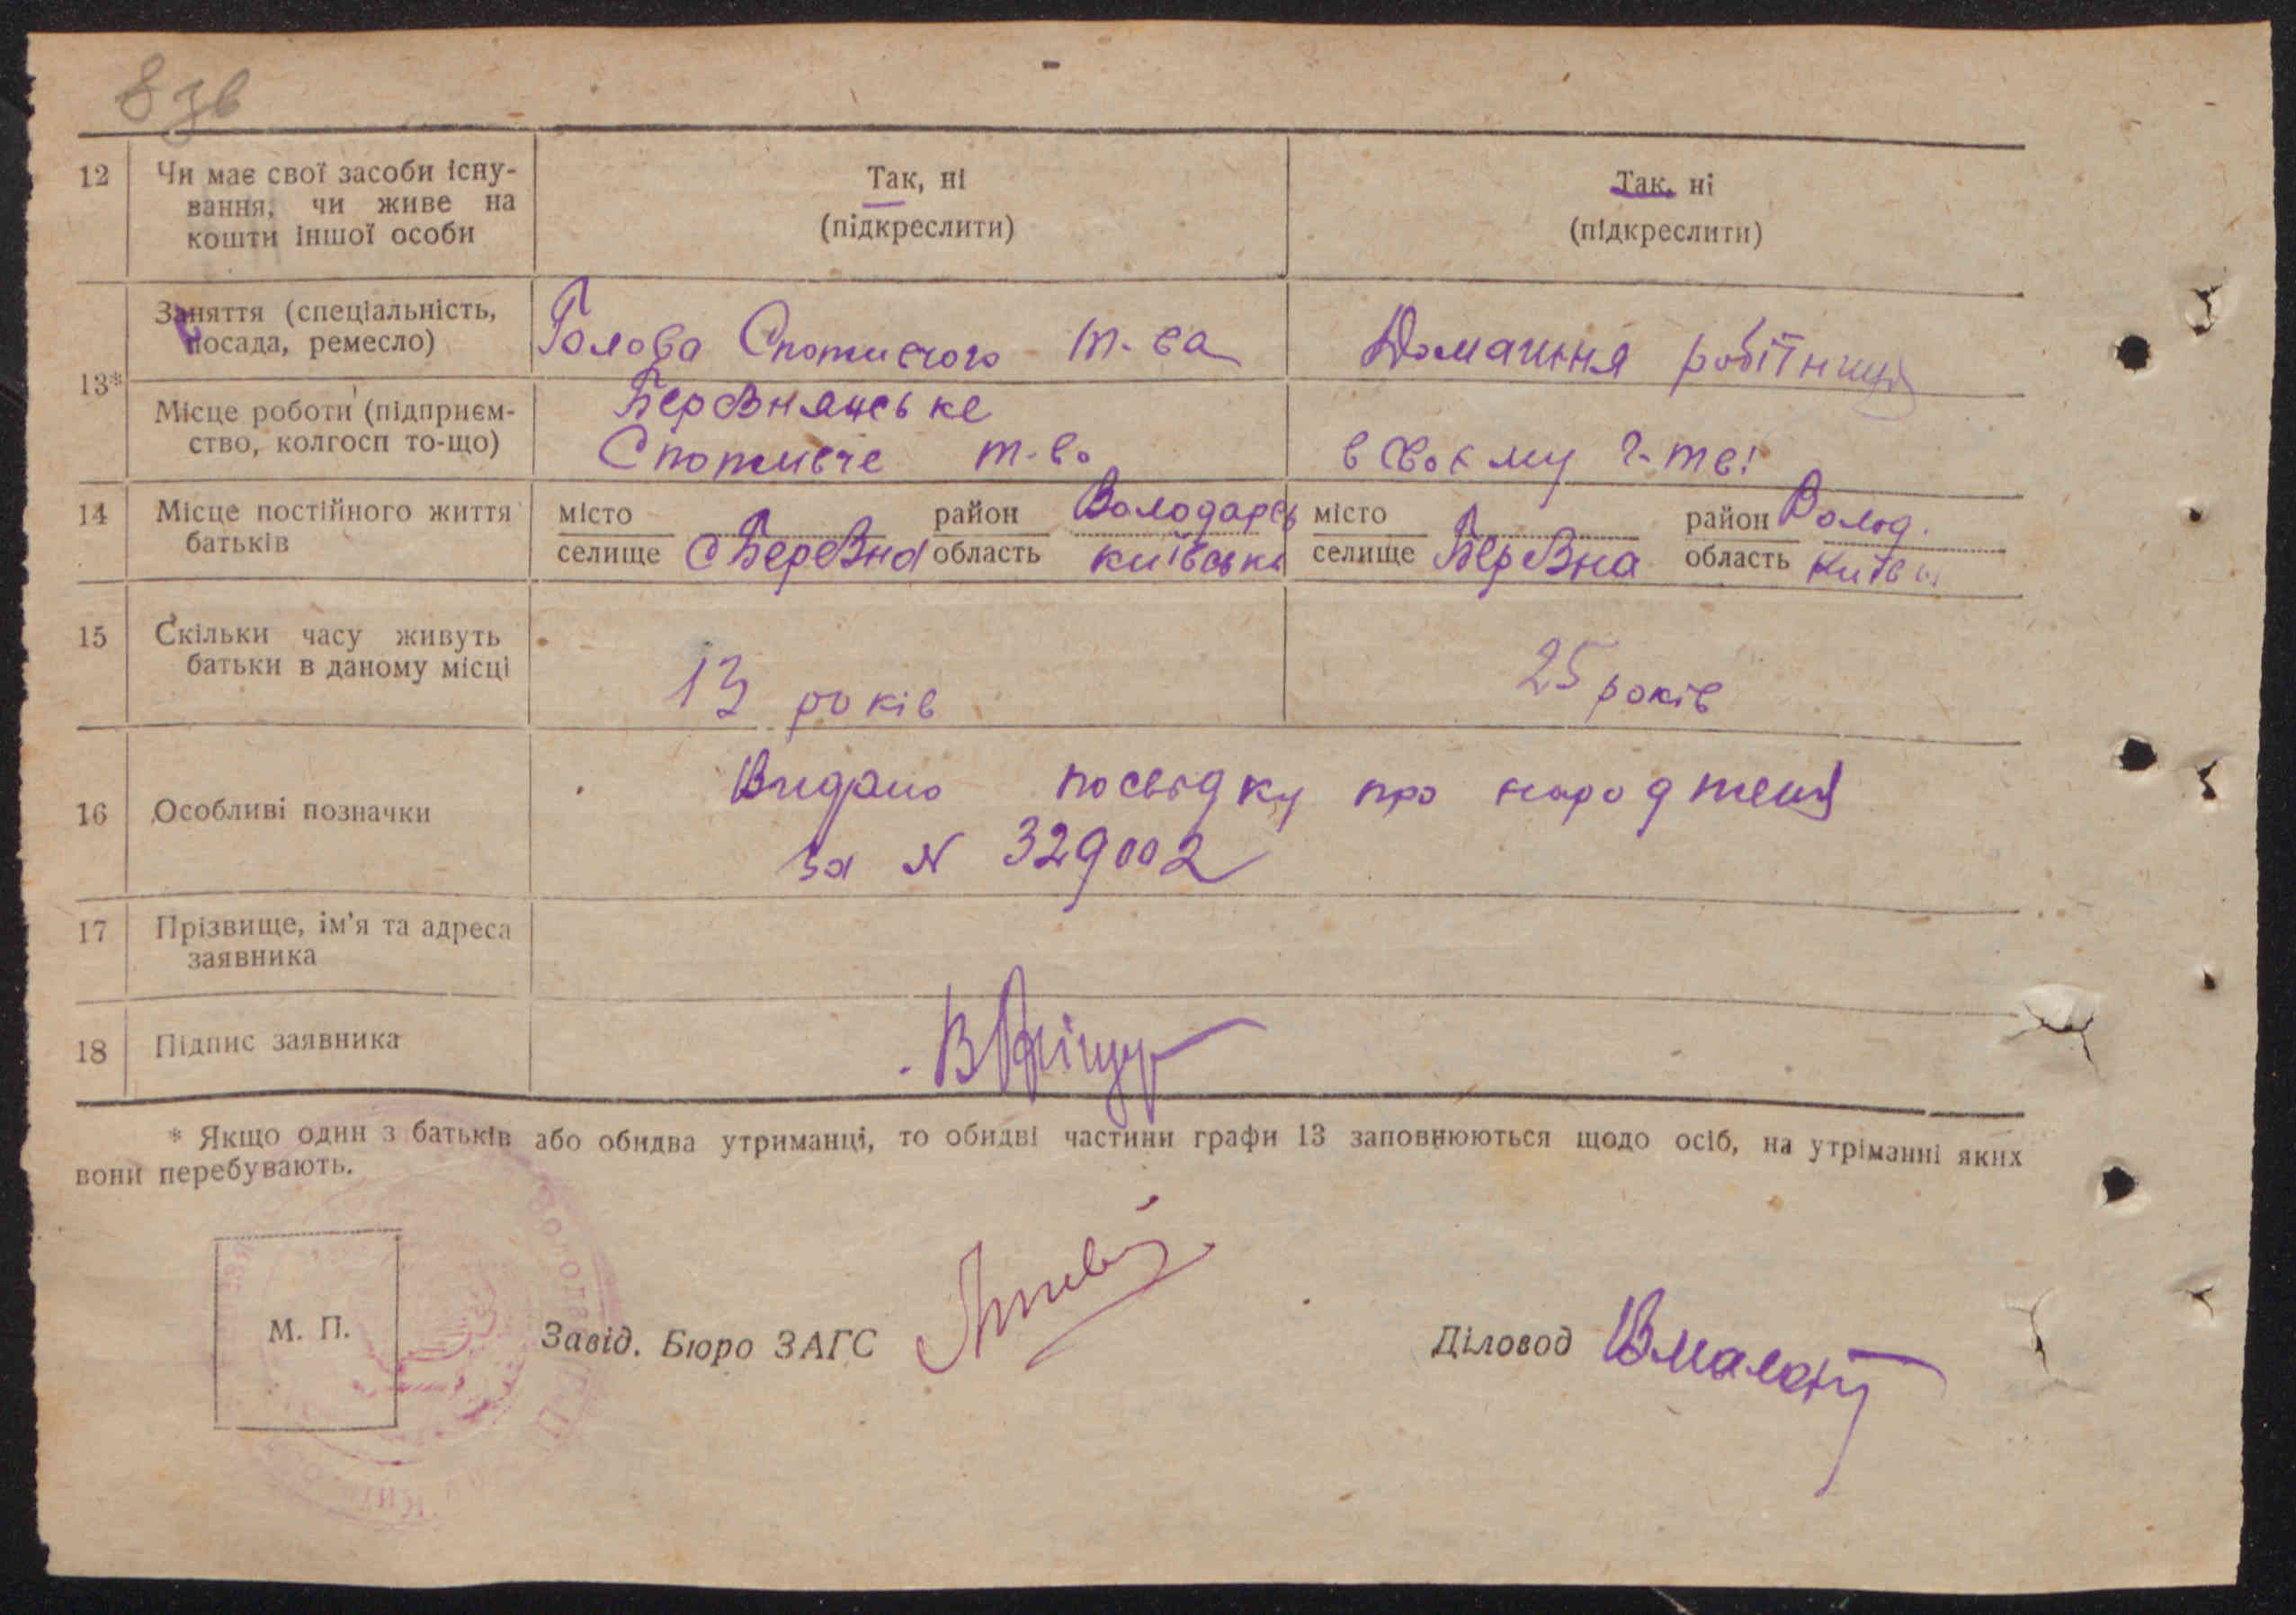 8 зв
12 Чи має свої засоби існу-
вання, чи живе на
кошти іншої особи
Так, ні
(підкреслити)
Так, ні
(підкреслити)
13*
Заняття (спеціальність,
посада, ремесло)
Голова Споживчого т-ва
Домашня робітниця
Місце роботи (підприєм-
ство, колгосп то-що)
Березнянське
Споживче т-во
в своєму г-тві
14 Місце постійного життя
батьків
місто район Володарсь
селище с Березна область київська
місто район Волод.
селище Березна область Київсь
15 Скільки часу живуть
батьки в даному місці
13 років
25 років
16 Особливі позначки
Видано посвідку про народженя
за № 329002
17 Прізвище, ім'я та адреса
заявника
18 Підпис заявника
* Якщо один з батьків або обидва утриманці, то обидві частини графи 13 заповнюються щодо осіб, на утріманні яких
вони перебувають.
М. П.
Завід. Бюро ЗАГС
Діловод